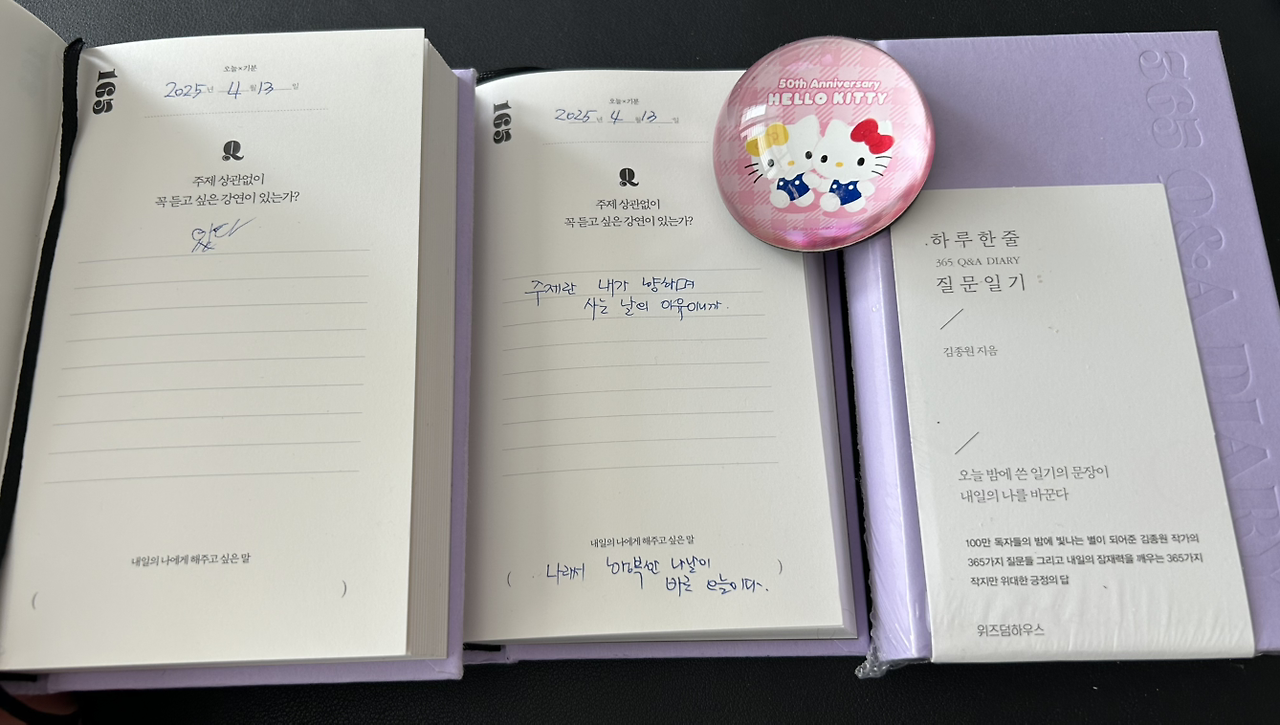 165
오늘×기분
2025년 4월 13일
Q
주제 상관없이
꼭 듣고 싶은 강연이 있는가?
있다
내일의 나에게 해주고 싶은 말
( )
165
오늘×기분
2025년 4월 13일
Q
주제 상관없이
꼭 듣고 싶은 강연이 있는가?
주제란 내가 향하며
사는 날의 이유이니까.
내일의 나에게 해주고 싶은 말
( 나라서 행복한 나날이
바로 오늘이다. )
50th Anniversary
HELLO KITTY
365 Q&A DIARY
하루한줄
365 Q&A DIARY
질문일기
김종원 지음
오늘 밤에 쓴 일기의 문장이
내일의 나를 바꾼다
100만 독자들의 밤에 빛나는 별이 되어준 김종원 작가의
365가지 질문들 그리고 내일의 잠재력을 깨우는 365가지
작지만 위대한 긍정의 답
위즈덤하우스